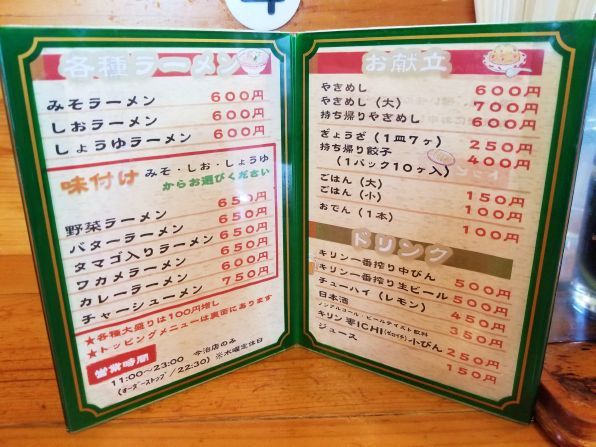 各種ラーメン
みそラーメン 600円
しおラーメン 600円
しょうゆラーメン 600円
味付け みそ・しお・しょうゆ
からお選びください
野菜ラーメン 650円
バターラーメン 650円
タマゴ入りラーメン 650円
ワカメラーメン 650円
カレーラーメン 600円
チャーシューメン 750円
★各種大盛りは100円増し
★トッピングメニューは裏面にあります
営業時間 今治店のみ
11:00〜23:00
(オーダーストップ/22:30) ※木曜定休日
お献立
やきめし 600円
やきめし（大） 700円
持ち帰りやきめし 600円
ぎょうざ（1皿7ヶ） 250円
持ち帰り餃子 400円
（1パック10ヶ入）
ごはん（大） 150円
ごはん（小） 100円
おでん（1本） 100円
ドリンク
キリン一番搾り中びん 500円
キリン一番搾り生ビール 500円
チューハイ（レモン） 450円
日本酒 350円
ノンアルコール・ビールテイスト飲料
キリン零ICHI(ゼロイチ)小びん 250円
ジュース 150円